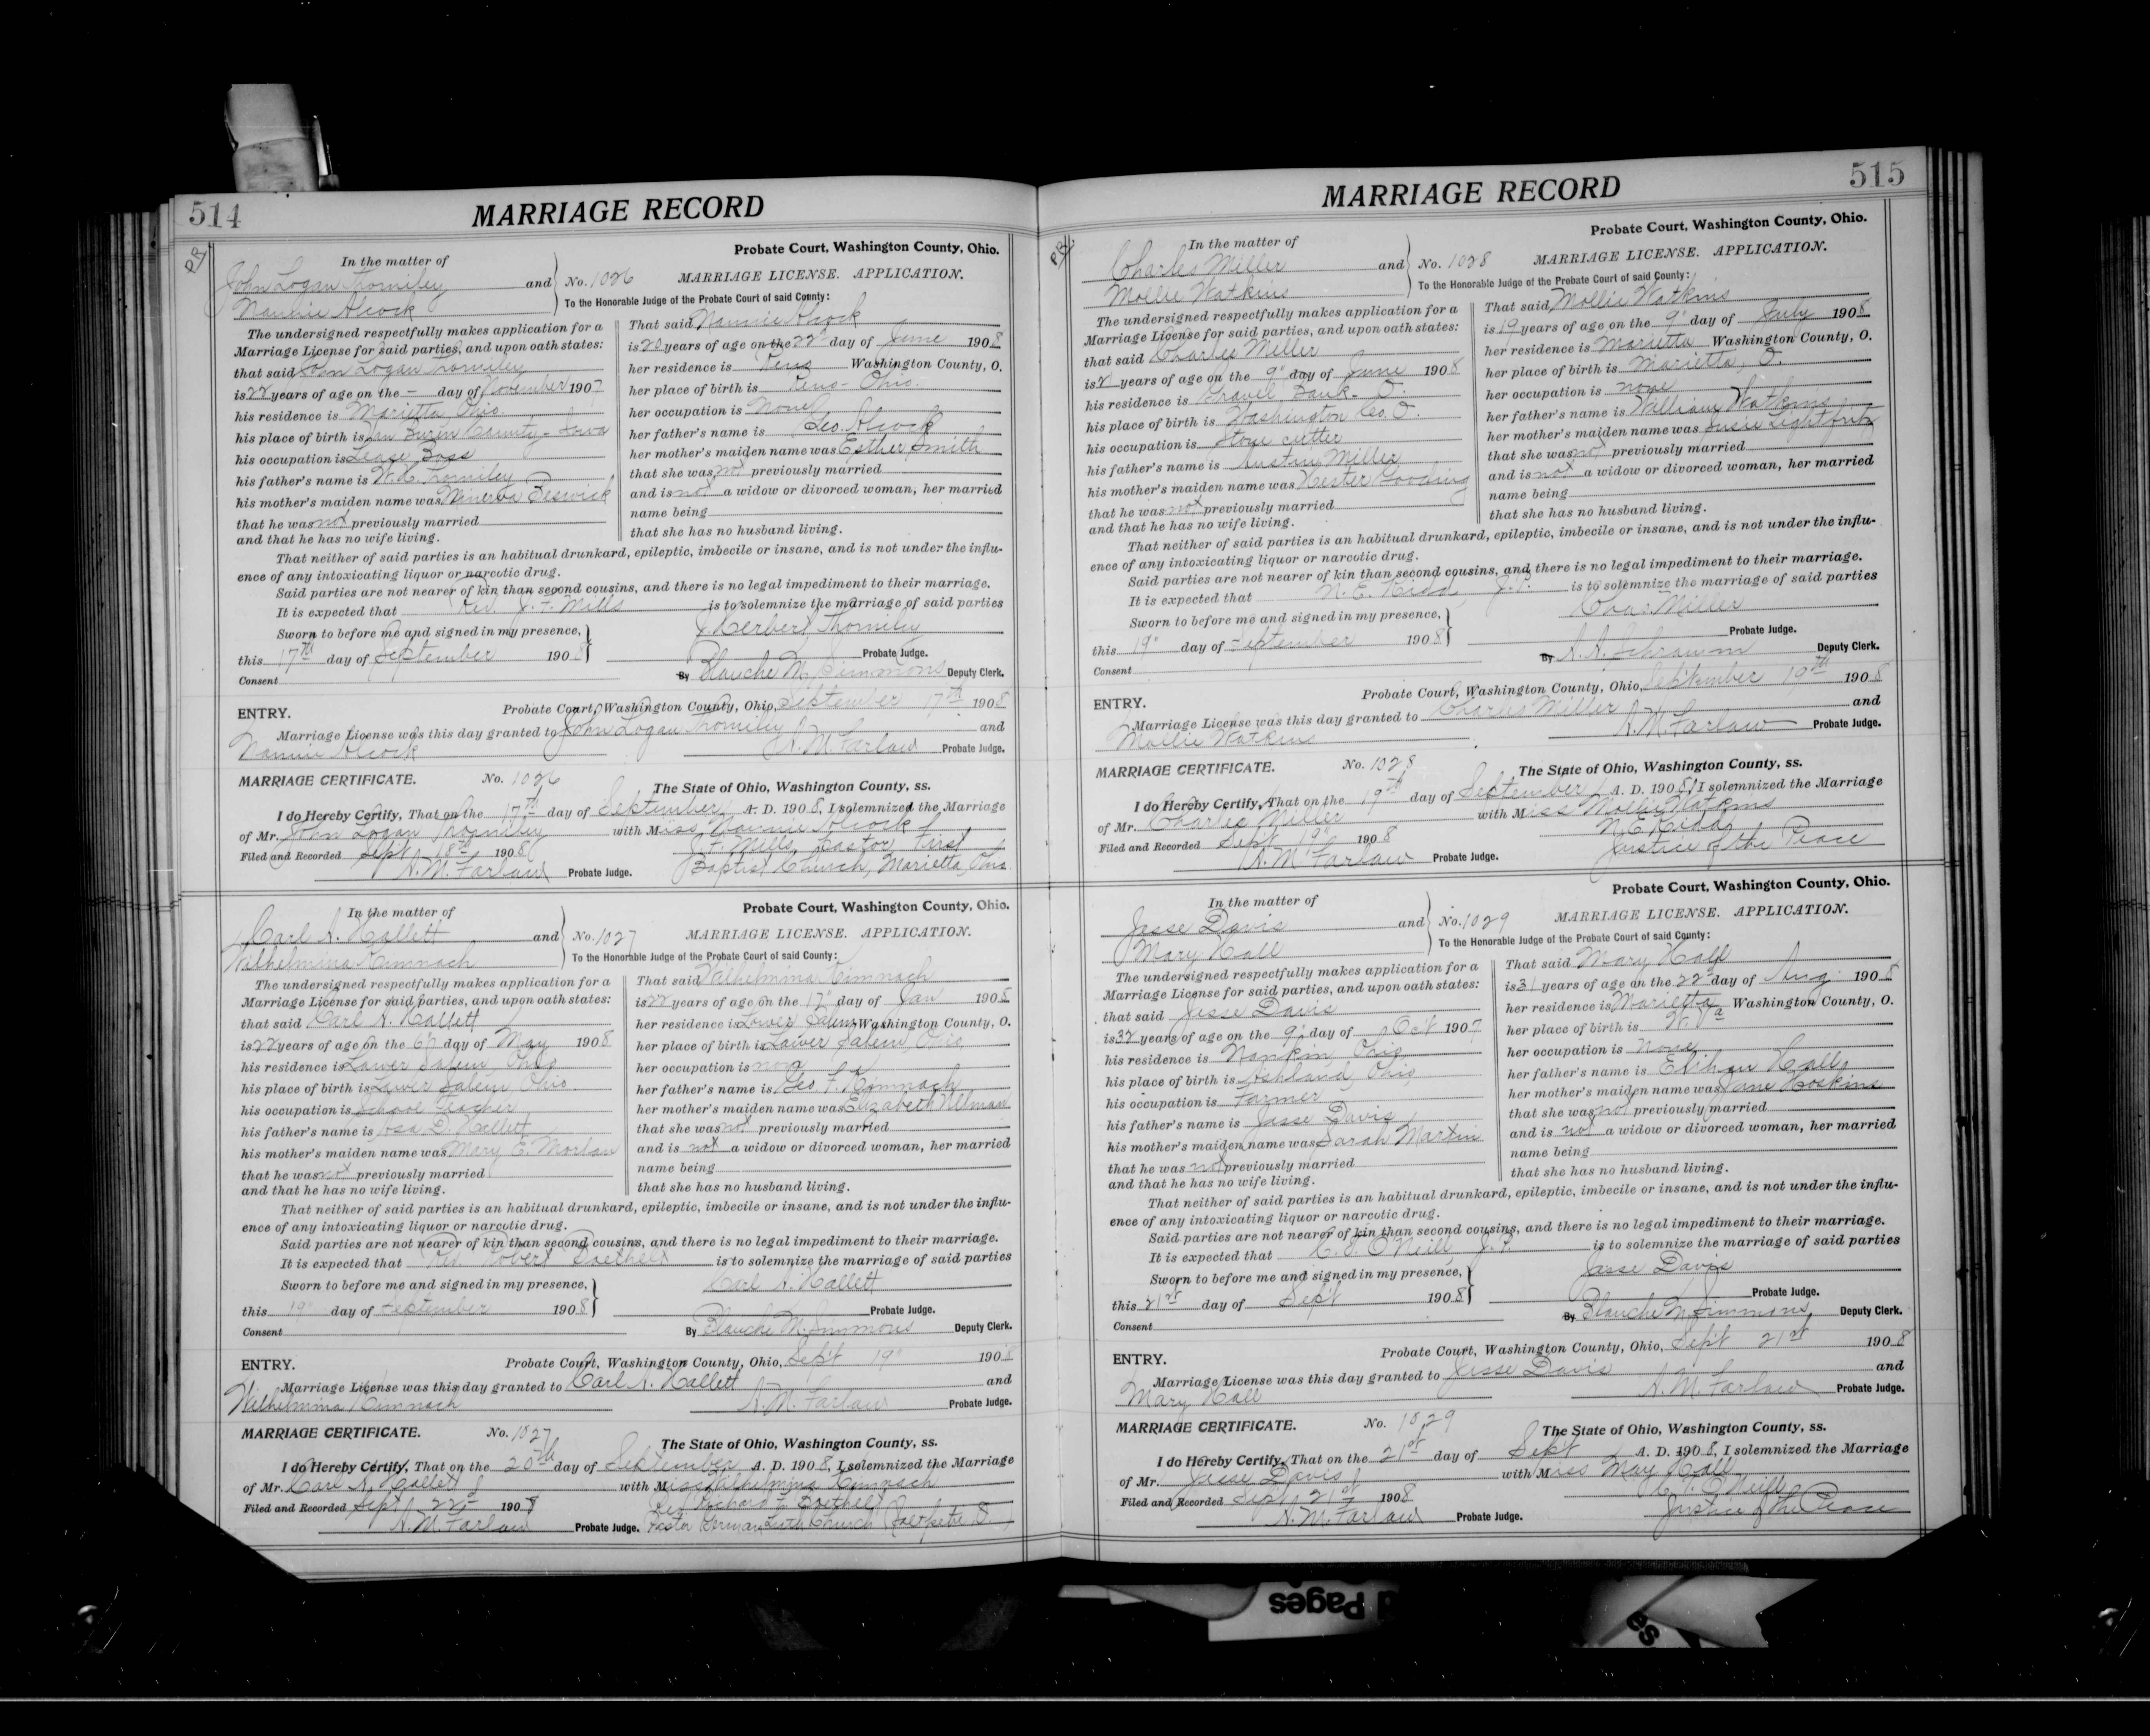 514
MARRIAGE RECORD
Probate Court, Washington County, Ohio.
In the matter of
John Logan Thorniley and
Nannie Alcock
No. 1026 MARRIAGE LICENSE. APPLICATION.
To the Honorable Judge of the Probate Court of said County:
The undersigned respectfully makes application for a
Marriage License for said parties, and upon oath states:
that said John Logan Thorniley
is 22 years of age on the - day of November 1907
his residence is Marietta, Ohio.
his place of birth is Van Buren County - Iowa
his occupation is Lease Boss
his father's name is W. C. Thorniley
his mother's maiden name was Minerva Beswick
that he was not previously married
and that he has no wife living.
That said Nannie Alcock
is 20 years of age on the 22" day of June 1908
her residence is Reno Washington County, O.
her place of birth is Reno - Ohio.
her occupation is None
her father's name is Geo. Alcock
her mother's maiden name was Esther Smith
that she was not previously married
and is not a widow or divorced woman, her married
name being
that she has no husband living.
That neither of said parties is an habitual drunkard, epileptic, imbecile or insane, and is not under the influ-
ence of any intoxicating liquor or narcotic drug.
Said parties are not nearer of kin than second cousins, and there is no legal impediment to their marriage.
It is expected that Rev. J. F. Mills is to solemnize the marriage of said parties
Sworn to before me and signed in my presence, J. Herbert Thorniley
this 17th day of September 1908 Probate Judge.
Consent By Blanche M. Simmons Deputy Clerk.
ENTRY. Probate Court, Washington County, Ohio, September 17th 1908
Marriage License was this day granted to John Logan Thorniley and
Nannie Alcock A. M. Farlaw Probate Judge.
MARRIAGE CERTIFICATE. No. 1026 The State of Ohio, Washington County, ss.
I do Hereby Certify, That on the 17th day of September A. D. 1908, I solemnized the Marriage
of Mr. John Logan Thorniley with Miss Nannie Alcock
Filed and Recorded Sept. 18th 1908 J. F. Mills, Pastor, First
A. M. Farlaw Probate Judge. Baptist Church, Marietta, Ohio
Probate Court, Washington County, Ohio.
In the matter of
Carl A. Hallett and
Wilhelmina Kimnach
No. 1027 MARRIAGE LICENSE. APPLICATION.
To the Honorable Judge of the Probate Court of said County:
The undersigned respectfully makes application for a
Marriage License for said parties, and upon oath states:
that said Carl A. Hallett
is 22 years of age on the 6" day of May 1908
his residence is Lower Salem, Ohio
his place of birth is Lower Salem, Ohio.
his occupation is School Teacher
his father's name is Asa D. Hallett
his mother's maiden name was Mary E. Morton
that he was not previously married
and that he has no wife living.
That said Wilhelmina Kimnach
is 22 years of age on the 17" day of Jan 1908
her residence is Lower Salem Washington County, O.
her place of birth is Lower Salem, Ohio
her occupation is none
her father's name is Geo. F. Kimnach
her mother's maiden name was Elizabeth
that she was not previously married
and is not a widow or divorced woman, her married
name being
that she has no husband living.
That neither of said parties is an habitual drunkard, epileptic, imbecile or insane, and is not under the influ-
ence of any intoxicating liquor or narcotic drug.
Said parties are not nearer of kin than second cousins, and there is no legal impediment to their marriage.
It is expected that Rev. Robert is to solemnize the marriage of said parties
Sworn to before me and signed in my presence, Carl A. Hallett
this 19" day of September 1908 Probate Judge.
Consent By Blanche M. Simmons Deputy Clerk.
ENTRY. Probate Court, Washington County, Ohio, Sept 19" 1908
Marriage License was this day granted to Carl A. Hallett and
Wilhelmina Kimnach A. M. Farlaw Probate Judge.
MARRIAGE CERTIFICATE. No. 1027 The State of Ohio, Washington County, ss.
I do Hereby Certify, That on the 20th day of September A. D. 1908, I solemnized the Marriage
of Mr. Carl A. Hallett with Miss Wilhelmina Kimnach
Filed and Recorded Sept. 22" 1908 Rev. Richard F.
A. M. Farlaw Probate Judge. Pastor German Luth. Church
515
MARRIAGE RECORD
Probate Court, Washington County, Ohio.
In the matter of
Charles Miller and
Mollie Watkins
No. 1028 MARRIAGE LICENSE. APPLICATION.
To the Honorable Judge of the Probate Court of said County:
The undersigned respectfully makes application for a
Marriage License for said parties, and upon oath states:
that said Charles Miller
is years of age on the 9" day of June 1908
his residence is Gravel Bank - O.
his place of birth is Washington Co. O.
his occupation is Stone cutter
his father's name is Austin Miller
his mother's maiden name was Hester Gooding
that he was not previously married
and that he has no wife living.
That said Mollie Watkins
is 19 years of age on the 9" day of July 1908
her residence is Marietta Washington County, O.
her place of birth is Marietta, O.
her occupation is none
her father's name is William Watkins
her mother's maiden name was Lightfritz
that she was not previously married
and is not a widow or divorced woman, her married
name being
that she has no husband living.
That neither of said parties is an habitual drunkard, epileptic, imbecile or insane, and is not under the influ-
ence of any intoxicating liquor or narcotic drug.
Said parties are not nearer of kin than second cousins, and there is no legal impediment to their marriage.
It is expected that N. E. Kidd, J. P. is to solemnize the marriage of said parties
Sworn to before me and signed in my presence, Chas. Miller
this 19" day of September 1908 Probate Judge.
Consent By A. A. Schramm Deputy Clerk.
ENTRY. Probate Court, Washington County, Ohio, September 19th 1908
Marriage License was this day granted to Charles Miller and
Mollie Watkins A. M. Farlaw Probate Judge.
MARRIAGE CERTIFICATE. No. 1028 The State of Ohio, Washington County, ss.
I do Hereby Certify, That on the 19th day of September A. D. 1908, I solemnized the Marriage
of Mr. Charles Miller with Miss Mollie Watkins
Filed and Recorded Sept 19" 1908 N. E. Kidd
A. M. Farlaw Probate Judge. Justice of the Peace
Probate Court, Washington County, Ohio.
In the matter of
Jesse Davis and
Mary Hall
No. 1029 MARRIAGE LICENSE. APPLICATION.
To the Honorable Judge of the Probate Court of said County:
The undersigned respectfully makes application for a
Marriage License for said parties, and upon oath states:
that said Jesse Davis
is 32 years of age on the 9" day of Oct 1907
his residence is Nankin, Ohio
his place of birth is Ashland, Ohio
his occupation is Farmer
his father's name is Jesse Davis
his mother's maiden name was Sarah Martin
that he was not previously married
and that he has no wife living.
That said Mary Hall
is 31 years of age on the 22" day of Aug. 1908
her residence is Marietta Washington County, O.
her place of birth is W. Va
her occupation is None
her father's name is Elihu Hall
her mother's maiden name was Jane Hoskins
that she was not previously married
and is not a widow or divorced woman, her married
name being
that she has no husband living.
That neither of said parties is an habitual drunkard, epileptic, imbecile or insane, and is not under the influ-
ence of any intoxicating liquor or narcotic drug.
Said parties are not nearer of kin than second cousins, and there is no legal impediment to their marriage.
It is expected that C. T. O'Neill, J. P. is to solemnize the marriage of said parties
Sworn to before me and signed in my presence, Jesse Davis
this 21st day of Sept 1908 Probate Judge.
Consent By Blanche M. Simmons Deputy Clerk.
ENTRY. Probate Court, Washington County, Ohio, Sept 21st 1908
Marriage License was this day granted to Jesse Davis and
Mary Hall A. M. Farlaw Probate Judge.
MARRIAGE CERTIFICATE. No. 1029 The State of Ohio, Washington County, ss.
I do Hereby Certify, That on the 21st day of Sept A. D. 1908, I solemnized the Marriage
of Mr. Jesse Davis with Miss May Hall
Filed and Recorded Sept 21st 1908 C. T. O'Neill
A. M. Farlaw Probate Judge. Justice of the Peace
Pages